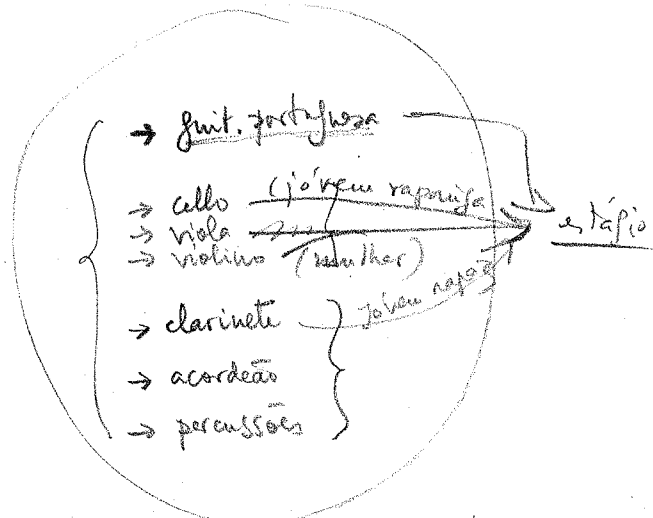 → guit. portuguesa
→ cello (jóvem rapariga
→ viola
→ violino (mulher)
estágio
→ clarinete jóvem rapaz
→ acordeão
→ percussões